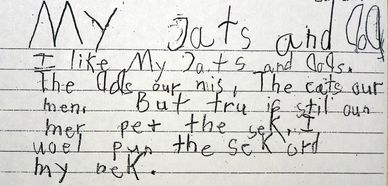 My Jats and
I like My Jats and dods.
the dds our nis, The cats our
men. But tru is stil oun
mer pet the seK. I
uoel pun the seK ord
my neK.